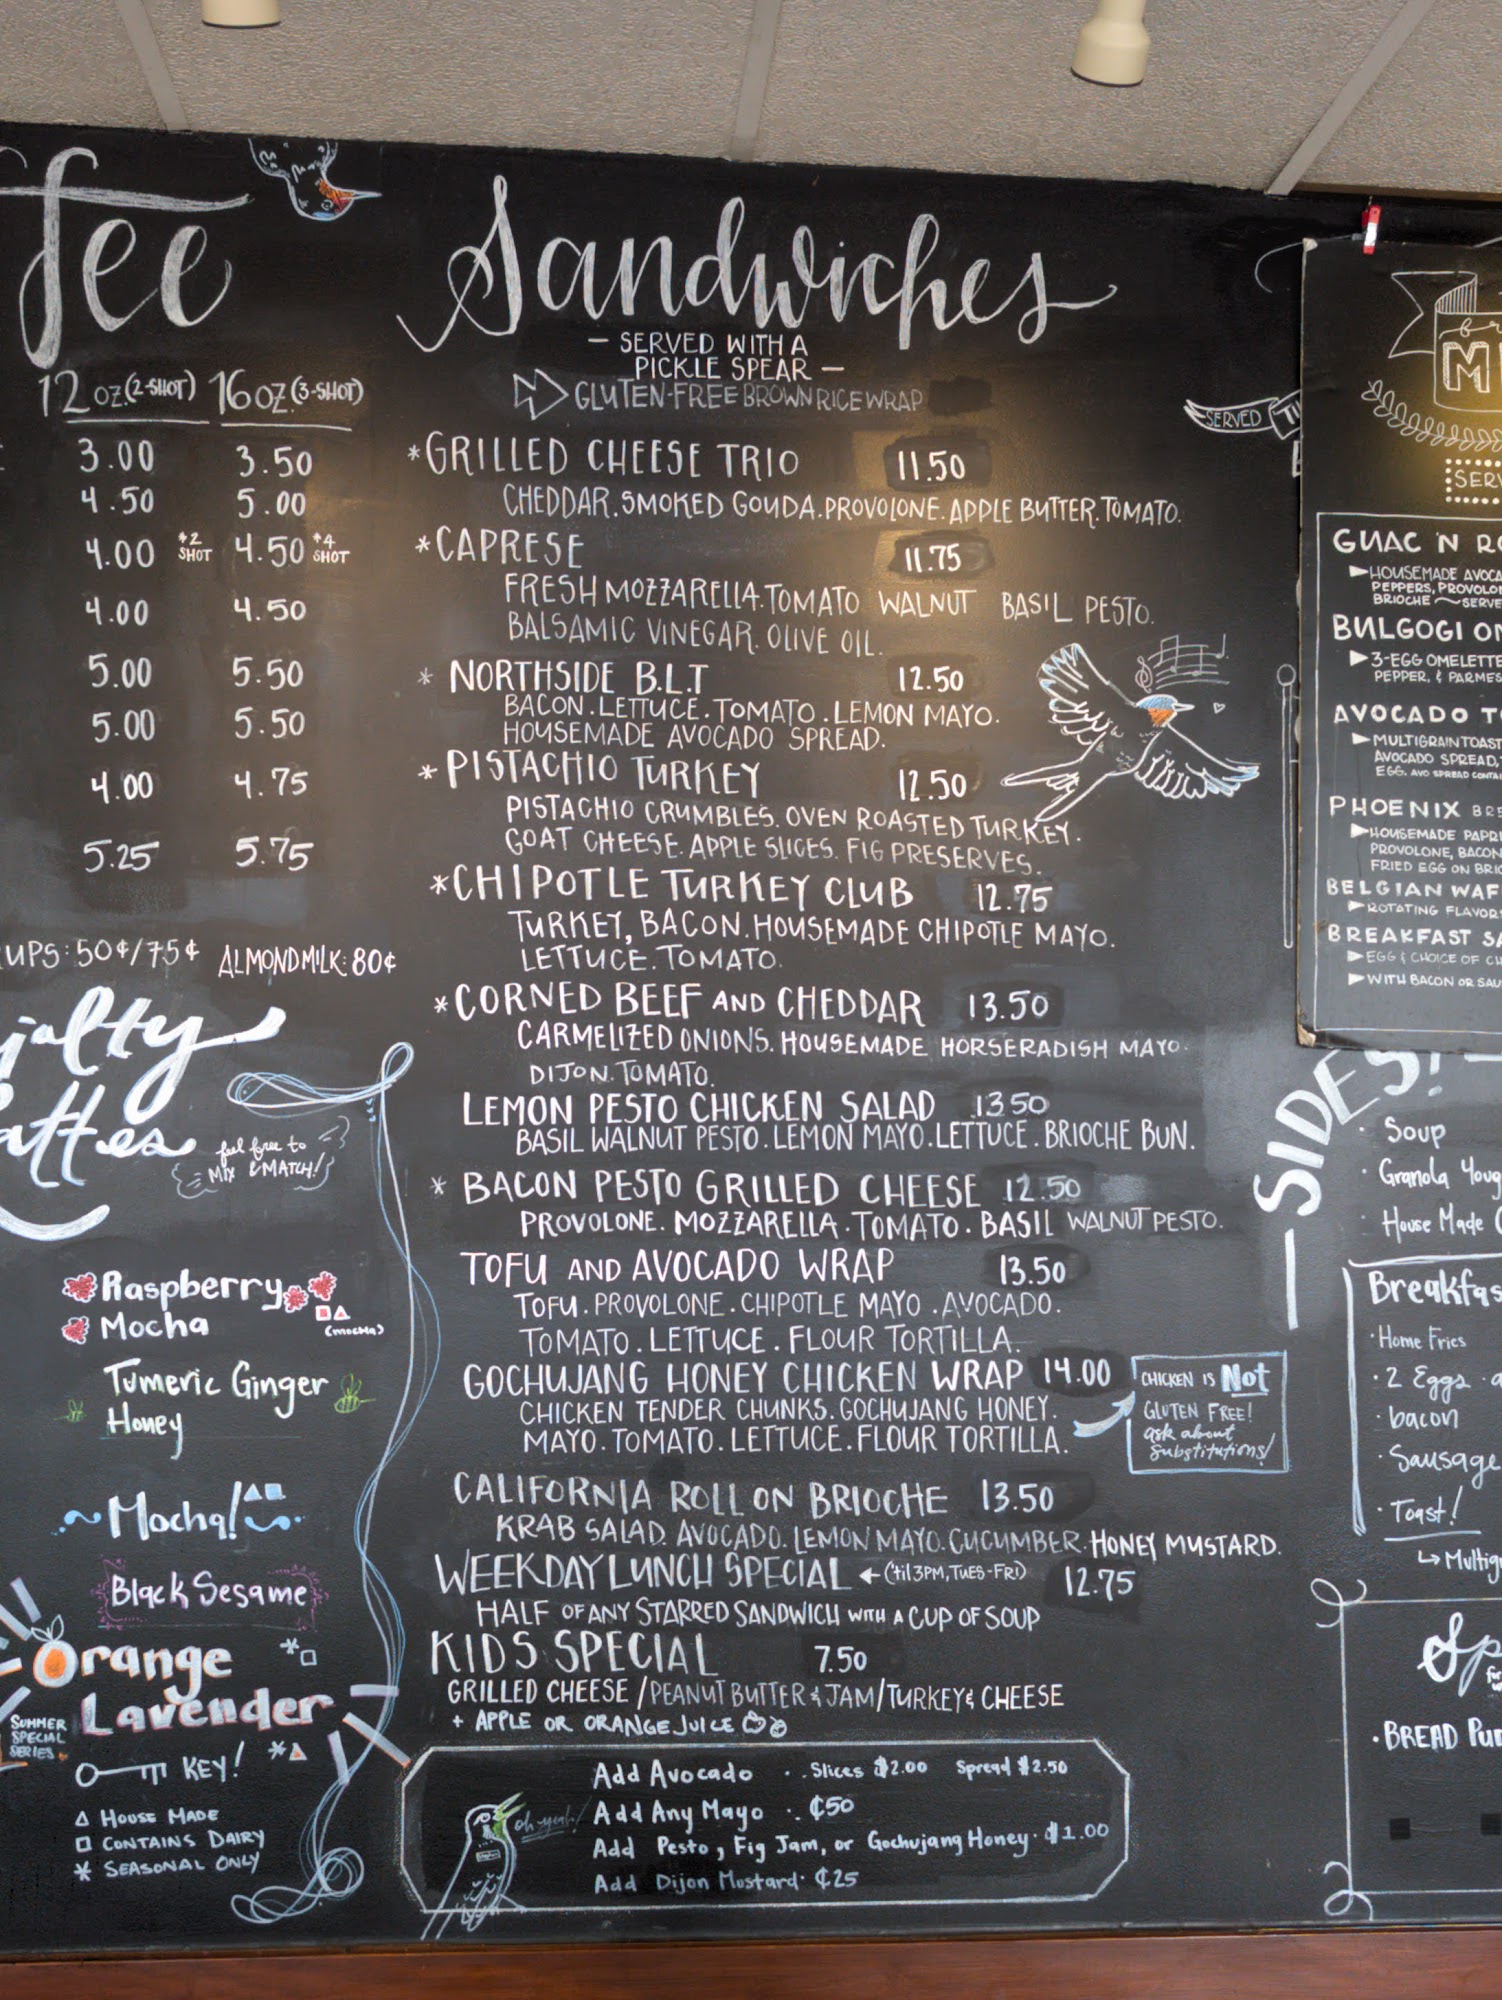 fee
12 oz.(2-SHOT) 16 oz.(3-SHOT)
3.00 3.50
4.50 5.00
4.00 *2 SHOT 4.50 *4 SHOT
4.00 4.50
5.00 5.50
5.00 5.50
4.00 4.75
5.25 5.75
UPS: 50¢/75¢ ALMONDMILK: 80¢
ialty
attes
feel free to
MIX & MATCH!
Raspberry
Mocha
(mocha)
Tumeric Ginger
Honey
Mocha!
Black Sesame
Orange
Lavender
SUMMER
SPECIAL
SERIES
KEY!
△ HOUSE MADE
□ CONTAINS DAIRY
* SEASONAL ONLY
Sandwiches
— SERVED WITH A
PICKLE SPEAR —
GLUTEN-FREE BROWN RICE WRAP
*GRILLED CHEESE TRIO 11.50
CHEDDAR. SMOKED GOUDA. PROVOLONE. APPLE BUTTER. TOMATO.
*CAPRESE 11.75
FRESH MOZZARELLA. TOMATO WALNUT BASIL PESTO.
BALSAMIC VINEGAR. OLIVE OIL.
* NORTHSIDE B.L.T 12.50
BACON. LETTUCE. TOMATO. LEMON MAYO.
HOUSEMADE AVOCADO SPREAD.
* PISTACHIO TURKEY 12.50
PISTACHIO CRUMBLES. OVEN ROASTED TURKEY.
GOAT CHEESE. APPLE SLICES. FIG PRESERVES.
*CHIPOTLE TURKEY CLUB 12.75
TURKEY, BACON. HOUSEMADE CHIPOTLE MAYO.
LETTUCE. TOMATO.
*CORNED BEEF AND CHEDDAR 13.50
CARMELIZED ONIONS. HOUSEMADE HORSERADISH MAYO.
DIJON. TOMATO.
LEMON PESTO CHICKEN SALAD 13.50
BASIL WALNUT PESTO. LEMON MAYO. LETTUCE. BRIOCHE BUN.
* BACON PESTO GRILLED CHEESE 12.50
PROVOLONE. MOZZARELLA. TOMATO. BASIL WALNUT PESTO.
TOFU AND AVOCADO WRAP 13.50
TOFU. PROVOLONE. CHIPOTLE MAYO. AVOCADO.
TOMATO. LETTUCE. FLOUR TORTILLA.
GOCHUJANG HONEY CHICKEN WRAP 14.00
CHICKEN TENDER CHUNKS. GOCHUJANG HONEY.
MAYO. TOMATO. LETTUCE. FLOUR TORTILLA.
CHICKEN IS NOT
GLUTEN FREE!
ask about
substitutions!
CALIFORNIA ROLL ON BRIOCHE 13.50
KRAB SALAD. AVOCADO. LEMON MAYO. CUCUMBER. HONEY MUSTARD.
WEEKDAY LUNCH SPECIAL ← ('til 3PM, TUES-FRI) 12.75
HALF OF ANY STARRED SANDWICH WITH A CUP OF SOUP
KIDS SPECIAL 7.50
GRILLED CHEESE / PEANUT BUTTER & JAM / TURKEY & CHEESE
+ APPLE OR ORANGE JUICE
oh yeah!
Add Avocado .. Slices $2.00 Spread $2.50
Add Any Mayo .. ¢50
Add Pesto, Fig Jam, or Gochujang Honey. $1.00
Add Dijon Mustard. ¢25
SERVED
M
SERV
GUAC 'N RO
HOUSEMADE AVOCA
PEPPERS, PROVOLO
BRIOCHE ~ SERVE
BULGOGI OM
3-EGG OMELETTE
PEPPER, & PARMES
AVOCADO T
MULTIGRAIN TOAST
AVOCADO SPREAD,
EGG. AVO SPREAD CONTAI
PHOENIX BRE
HOUSEMADE PAPRI
PROVOLONE, BACON
FRIED EGG ON BRIO
BELGIAN WAF
ROTATING FLAVOR
BREAKFAST SA
EGG & CHOICE OF CH
WITH BACON OR SAU
SIDES!
· Soup
· Granola Youg
· House Made
Breakfas
· Home Fries
· 2 Eggs
· bacon
· Sausage
· Toast!
↳ Multig
Sp
· BREAD PUD